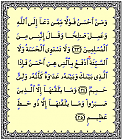 وَمَنْ أَحْسَنُ قَوْلًا مِمَّنْ دَعَا إِلَى اللَّهِ
وَعَمِلَ صَالِحًا وَقَالَ إِنَّنِي مِنَ
الْمُسْلِمِينَ ﴿٣٣﴾ وَلَا تَسْتَوِي الْحَسَنَةُ وَلَا
السَّيِّئَةُ ادْفَعْ بِالَّتِي هِيَ أَحْسَنُ فَإِذَا
الَّذِي بَيْنَكَ وَبَيْنَهُ عَدَاوَةٌ كَأَنَّهُ وَلِيٌّ
حَمِيمٌ ﴿٣٤﴾ وَمَا يُلَقَّاهَا إِلَّا الَّذِينَ
صَبَرُوا وَمَا يُلَقَّاهَا إِلَّا ذُو حَظٍّ
عَظِيمٍ ﴿٣٥﴾